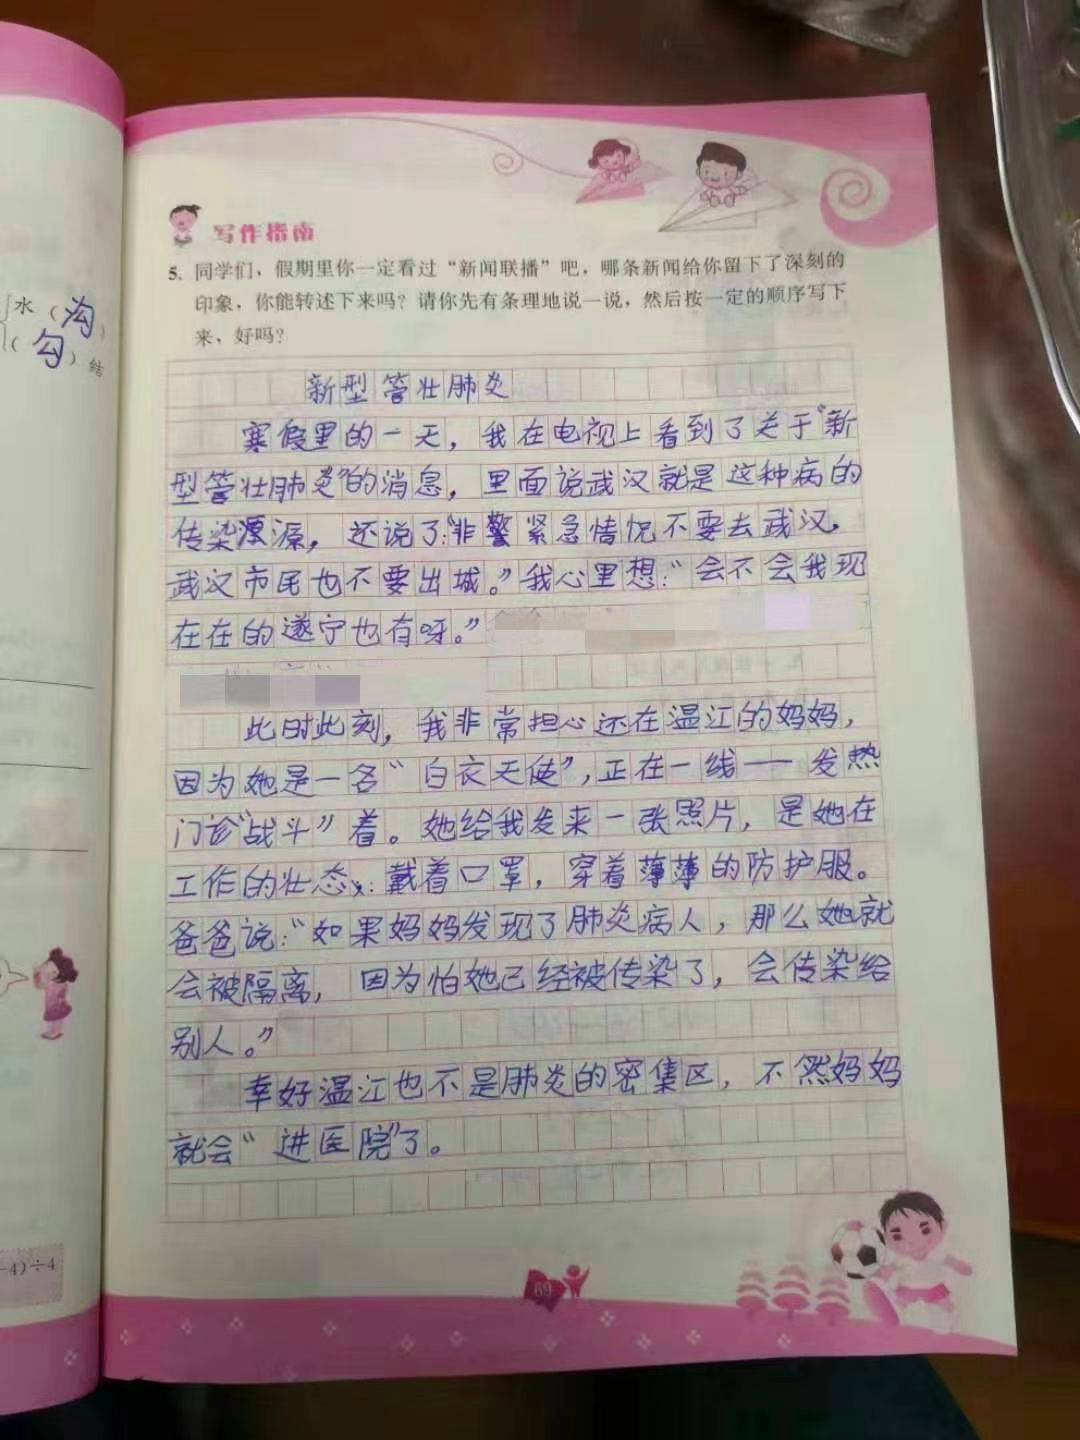 水（沟）
（勾）结
写作指南
5. 同学们，假期里你一定看过“新闻联播”吧，哪条新闻给你留下了深刻的
印象，你能转述下来吗？请你先有条理地说一说，然后按一定的顺序写下
来，好吗？
新型管壮肺炎
寒假里的一天，我在电视上看到了关于“新
型管壮肺炎”的消息，里面说武汉就是这种病的
传染源源，还说了：“非警紧急情况不要去武汉，
武汉市民也不要出城。”我心里想：“会不会我现
在在的遂宁也有呀。”
此时此刻，我非常担心还在温江的妈妈，
因为她是一名“白衣天使”，正在一线——发热
门诊“战斗”着。她给我发来一张照片，是她在
工作的壮态：戴着口罩，穿着薄薄的防护服。
爸爸说：“如果妈妈发现了肺炎病人，那么她就
会被隔离，因为怕她已经被传染了，会传染给
别人。”
幸好温江也不是肺炎的密集区，不然妈妈
就会“进医院”了。
-4)÷4
69